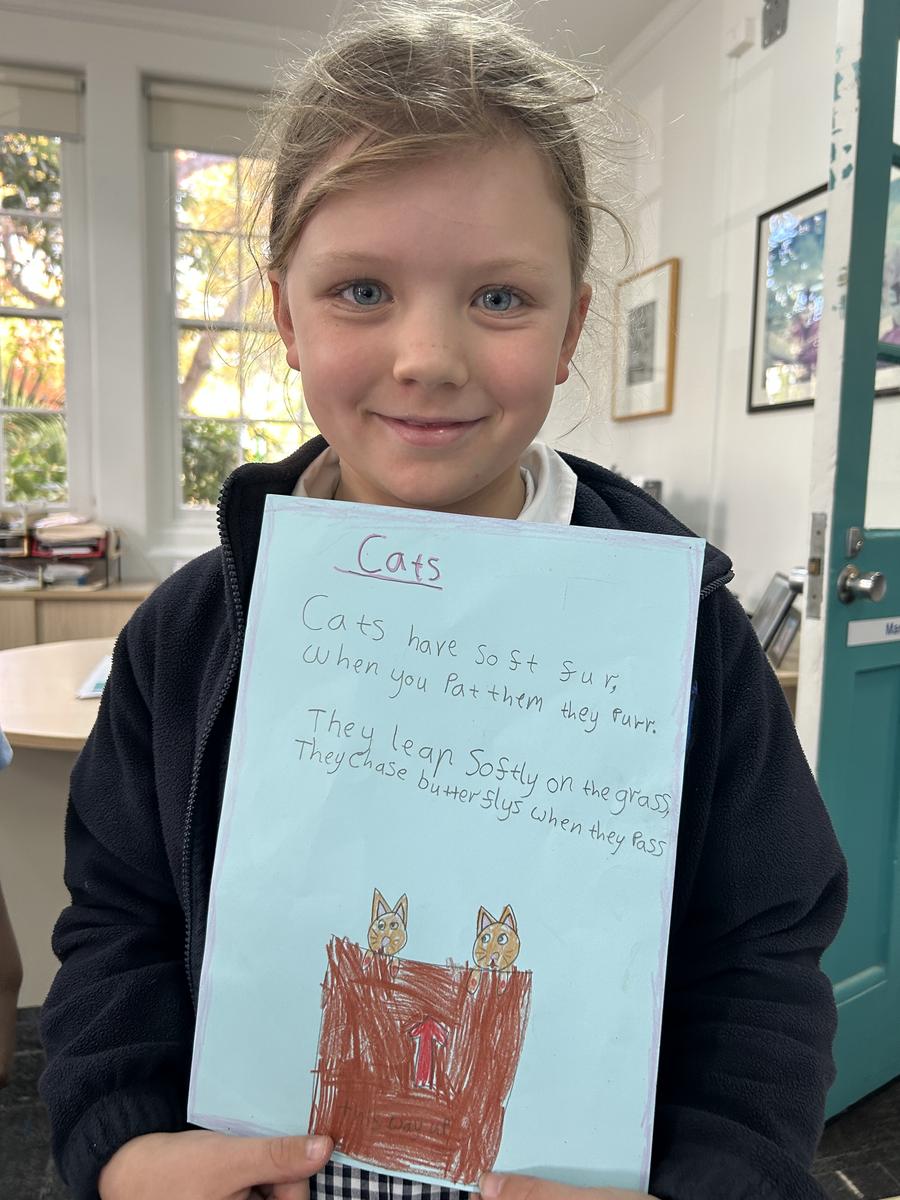 Cats
Cats have soft fur,
When you Pat them they Purr.
They leap Softly on the grass,
They chase butterflys when they Pass
this way up